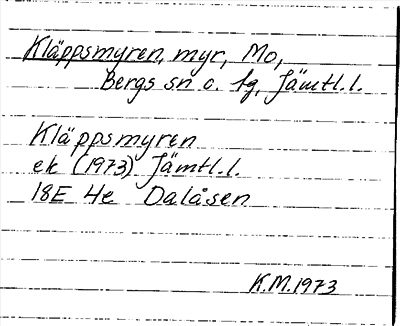 Kläppsmyren, myr, Mo,
Bergs sn o. tg, Jämtl.l.
Kläppsmyren
ek (1973) Jämtl.l.
18E 4e Dalåsen
K.M.1973